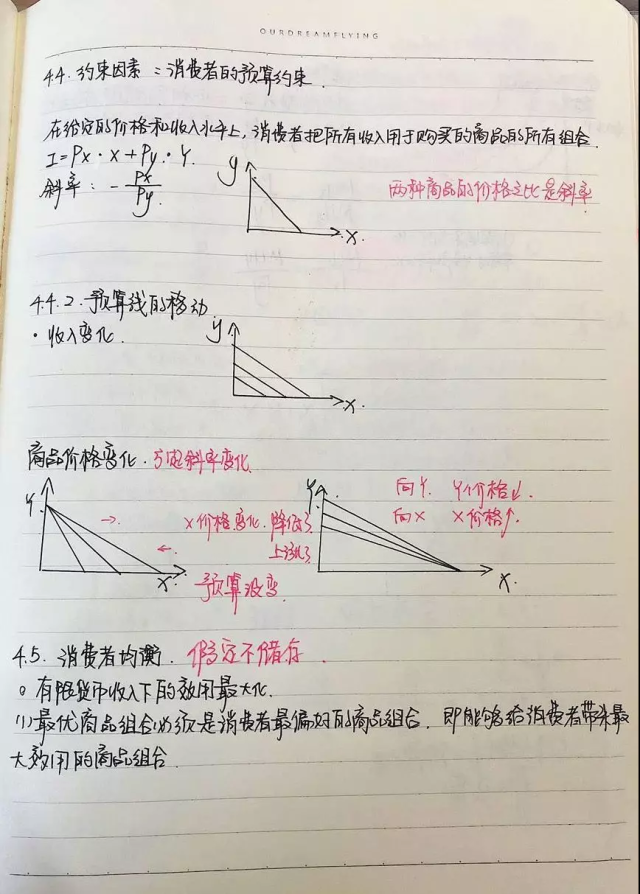 OURDREAMFLYING
4.4. 约束因素：消费者的预算约束.
在给定的价格和收入水平上，消费者把所有收入用于购买的商品的所有组合.
I = Px · X + Py · Y.
斜率：- Px/Py.
y
x.
两种商品的价格之比是斜率
4.4.2. 预算线的移动
· 收入变化.
y
x.
商品价格变化. 引起斜率变化.
Y
→
←
X
X价格变化. 降低了
上涨了
预算没变
Y
X.
向Y. Y价格↓.
向X X价格↑.
4.5. 消费者均衡. 假定不储存.
○ 有限货币收入下的效用最大化.
(1) 最优商品组合必须是消费者最偏好的商品组合. 即能够给消费者带来最
大效用的商品组合.